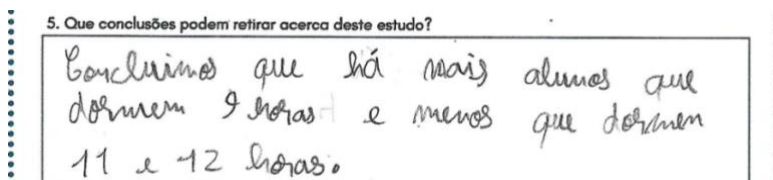 5. Que conclusões podem retirar acerca deste estudo?
Concluimos que há mais alunos que
dormem 9 horas e menos que dormem
11 e 12 horas.